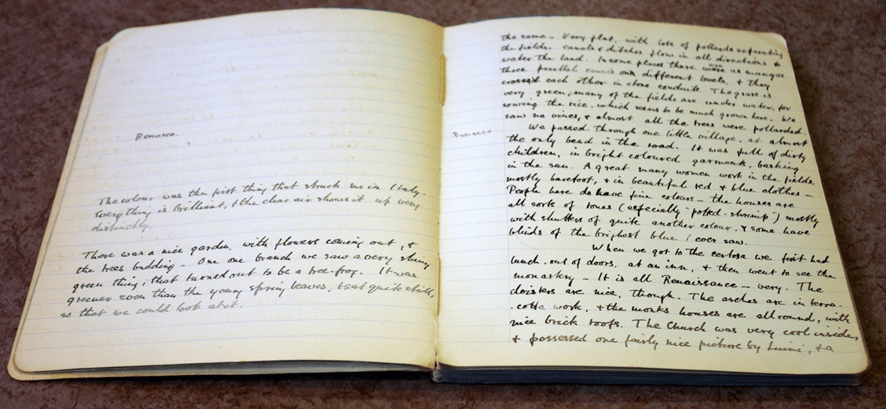 Binasco.
The colour was the first thing that struck me in Italy.
Everything is brilliant, & the clear air shows it up very
distinctly.
There was a nice garden, with flowers coming out, &
the trees budding - One one branch we saw a very shiny
green thing, that turned out to be a tree-frog. It was
greener even than the young spring leaves, & sat quite still,
so that we could look at it.
the same - Very flat, with lots of pollards separating
the fields - canals & ditches flow in all directions &
water the land. In some places there were as many as
three parallel canals on different levels, & they
crossed each other in stone conduits. The grass is
very green; many of the fields are under water, for
souring the rice, which seems to be much grown here. We
saw no vines, & almost all the trees were pollarded.
We passed through one little village, at almost
the only bend in the road. It was full of dirty
children, in bright coloured garments, basking
in the sun. A great many women work in the fields,
mostly barefoot, & in beautiful red & blue clothes -
People here do have fine colours - the houses are
all sorts of tones (especially "potted-shrimp") mostly
with shutters of quite another colour, & some have
blinds of the brighest blue I ever saw.
When we got to the certosa we first had
lunch, out of doors, at an inn, & then went to see the
monastery - It is all Renaissance - very. The
cloisters are nice, though. The arches are in terra-
cotta work, & the monks houses are all round, with
nice brick roofs. The Church was very cool inside,
& possessed one fairly nice picture by Luini, & a